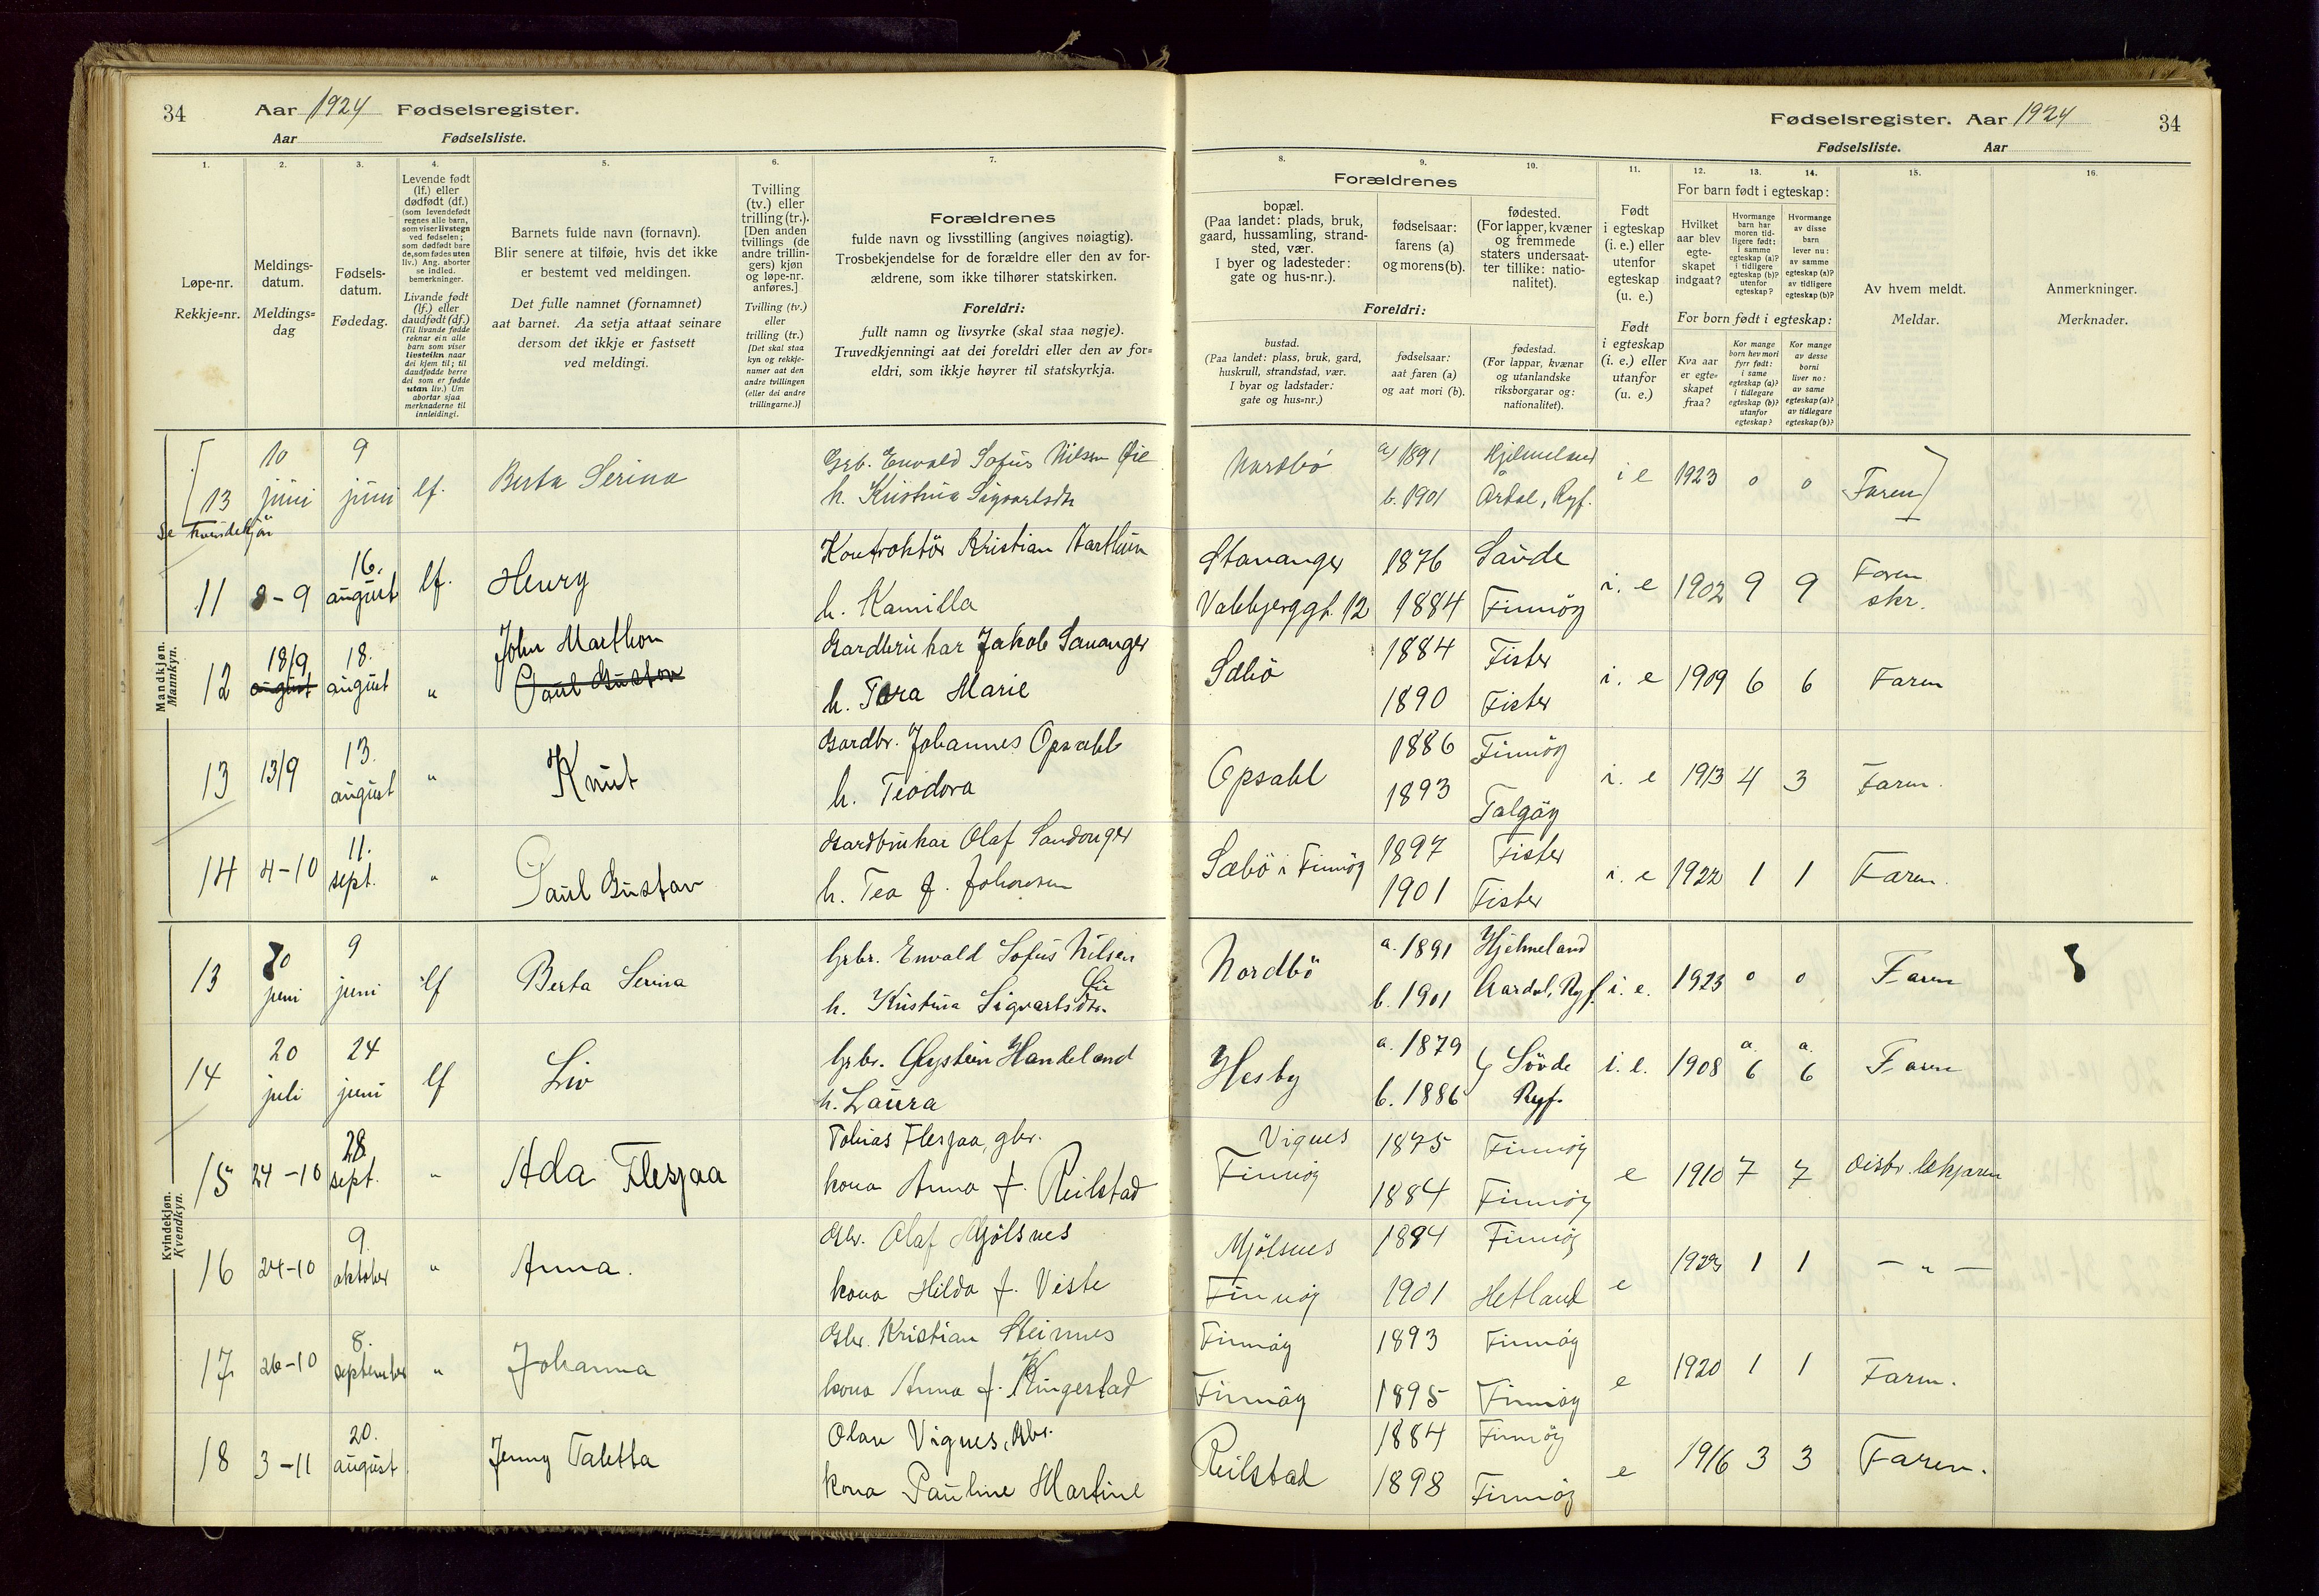 34 Aar 1924 Fødselsregister.
Aar Fødselsliste.
1. 2. 3. 4. 5. 6. 7.
Løpe-nr.
Rekkje-nr.
Meldings-
datum.
Meldings-
dag
Fødsels-
datum.
Fødedag.
Levende født
(lf.) eller
dødfødt (df.)
(som levendefødt
regnes alle barn,
som viser livstegn
ved fødselen;
som dødfødt bare
de, som fødes uten
liv.) Ang. aborter
se indled.
bemerkninger.
Livande født
(lf.) eller
daudfødt (df.)
(Til livande fødde
reknar ein alle
born som viser
livsteikn naar
dei kjem til; til
daudfødde berre
dei som er fødde
utan liv.) Um
abortar sjaa
merknaderne til
innleidingi.
Barnets fulde navn (fornavn).
Blir senere at tilføie, hvis det ikke
er bestemt ved meldingen.
Det fulle namnet (fornamnet)
aat barnet. Aa setja attaat seinare
dersom det ikkje er fastsett
ved meldingi.
Tvilling
(tv.) eller
trilling (tr.).
[Den anden
tvillings (de
andre trillin-
gers) kjøn
og løpe-nr.
anføres.]
Tvilling (tv.)
eller
trilling (tr.)
[Det skal staa
kyn og rekkje-
numer aat den
andre tvillingen
(eller dei andre
trillingarne.)]
Forældrenes
fulde navn og livsstilling (angives nøiagtig).
Trosbekjendelse for de forældre eller den av for-
ældrene, som ikke tilhører statskirken.
Foreldri:
fullt namn og livsyrke (skal staa nøgje).
Truvedkjenningi aat dei foreldri eller den av for-
eldri, som ikkje høyrer til statskyrkja.
13 10 juni 9 juni lf. Berta Serina
Grb. Envald Sofus Nilsen Øie
h. Kristina Sigvartsdtr
Se kvindekjøn
Mandkjøn.
Mannkyn.
11 8-9 16. august lf. Henry
h. Kamilla
12 18/9 august 18. august „ John Marthon
Paul Gustav
Gardbrukar Jakob Sananger
h. Tora Marie
13 13/9 13. august „ Knut
Gardbr. Johannes Opsahl
h. Teodora
14 4-10 11. sept. „ Paul Gustav
Gardbrukar Olaf Sandanger
h. Tea f. Johnsen
Kvindekjøn.
Kvendkyn.
13 10 juni 9 juni lf Berta Serina
Grbr. Envald Sofus Nilsen
Øie
h. Kristina Sigvartsdtr.
14 20 juli 24 juni lf Liv
Grbr. Øystein Handeland
h. Laura
15 24-10 28 sept. „ Ada Flesjaa
Tobias Flesjaa, gbr.
kona Anna f. Reilstad
16 24-10 9. oktober „ Anna.
Gbr. Olaf Mjölsnes
kona Hilda f. Viste
17 26-10 8. september „ Johanna
Gbr. Kristian Steinnes
kona Anna f. Kingestad
18 3-11 20. august Jenny Taletta
Olav Vignes, Gbr.
kona Pauline Martine
Fødselsregister. Aar 1924 34
Fødselsliste. Aar
8. 9. 10. 11. 12. 13. 14. 15. 16.
Forældrenes
bopæl.
(Paa landet: plads, bruk,
gaard, hussamling, strand-
sted, vær.
I byer og ladesteder:
gate og hus-nr.).
fødselsaar:
farens (a)
og morens (b).
fødested.
(For lapper, kvæner
og fremmede
staters undersaat-
ter tillike: natio-
nalitet).
Foreldri:
bustad.
(Paa landet: plass, bruk, gard,
huskrull, strandstad, vær.
I byar og ladstader:
gate og hus-nr.)
fødselsaar:
aat faren (a)
og aat mori (b).
fødestad.
(For lappar, kvænar
og utanlandske
riksborgarar og:
nationalitet).
Født
i egteskap
(i. e.) eller
utenfor
egteskap
(u. e.)
Født
i egteskap
(i. e.) eller
utanfor
(u. e.)
For barn født i egteskap:
Hvilket
aar blev
egte-
skapet
indgaat?
Hvormange
barn har
moren tid-
ligere født:
i samme
egteskap (a)?
i tidligere
egteskap (b)?
utenfor
egteskap?
Hvormange
av disse
barn
lever nu:
av samme
egteskap (a)?
av tidligere
egteskap (b)?
For born født i egteskap:
Kva aar
er egte-
skapet
fraa?
Kor mange
born hev mori
fyrr født:
i same
egteskap (a)?
i tidlegare
egteskap (b)?
utanfor
egteskap?
Kor mange
av desse
borni
liver no:
av same
egteskap (a)?
av tidlegare
egteskap (b)?
Av hvem meldt.
Meldar.
Anmerkninger.
Merknader.
Nordbö a/ 1891 Hjelmeland i e 1923 0 0 Faren
b. 1901 Årdal, Ryf.
Stavanger 1876 Saude i. e 1902 9 9 Faren
skr.
12 1884 Finnöy
Sæbö 1884 Fister i. e 1909 6 6 Faren
1890 Fister
Opsahl 1886 Finnöy i. e 1913 4 3 Faren.
1893 Talgöy
Sæbö i Finnöy 1897 Fister i. e 1922 1 1 Faren.
1901 Fister
Nordbö a. 1891 Hjelmeland i. e. 1923 0 0 Faren
b. 1901 Aardal, Ryf.
Hesby a. 1879 Sövde i. e. 1908 a. 6 a. 6 Faren
b. 1886 Ryf.
Vignes 1875 Finnöy e 1910 7 7 distr. lækjaren
Finnöy 1884 Finnöy
Mjölsnes 1894 Finnöy e 1 1 — „ —
Finnöy 1901 Hetland
Finnöy 1893 Finnöy e 1920 1 1 Faren.
Finnöy 1895 Finnöy
Reilstad 1884 Finnöy e 1916 3 3 Faren.
1898 Finnöy